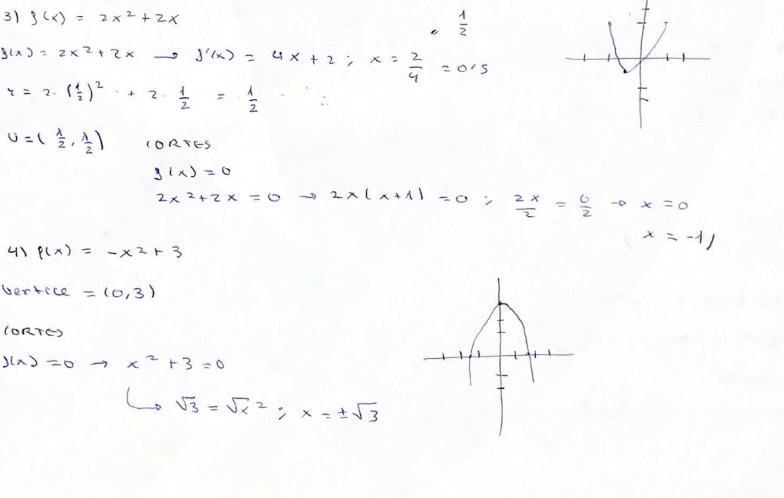 3) f(x) = 2x² + 2x
, 1/2
f(x) = 2x² + 2x → f'(x) = 4x + 2 ; x = 2/4 = 0'5
r = 2 · (1/2)² + 2 · 1/2 = 1/2
U = (1/2, 1/2)
CORTES
f(x) = 0
2x² + 2x = 0 → 2x(x+1) = 0 ; 2x/2 = 0/2 → x = 0
x = -1)
4) f(x) = -x² + 3
Vertice = (0,3)
CORTES
f(x) = 0 → x² + 3 = 0
√3 = √x² ; x = ±√3